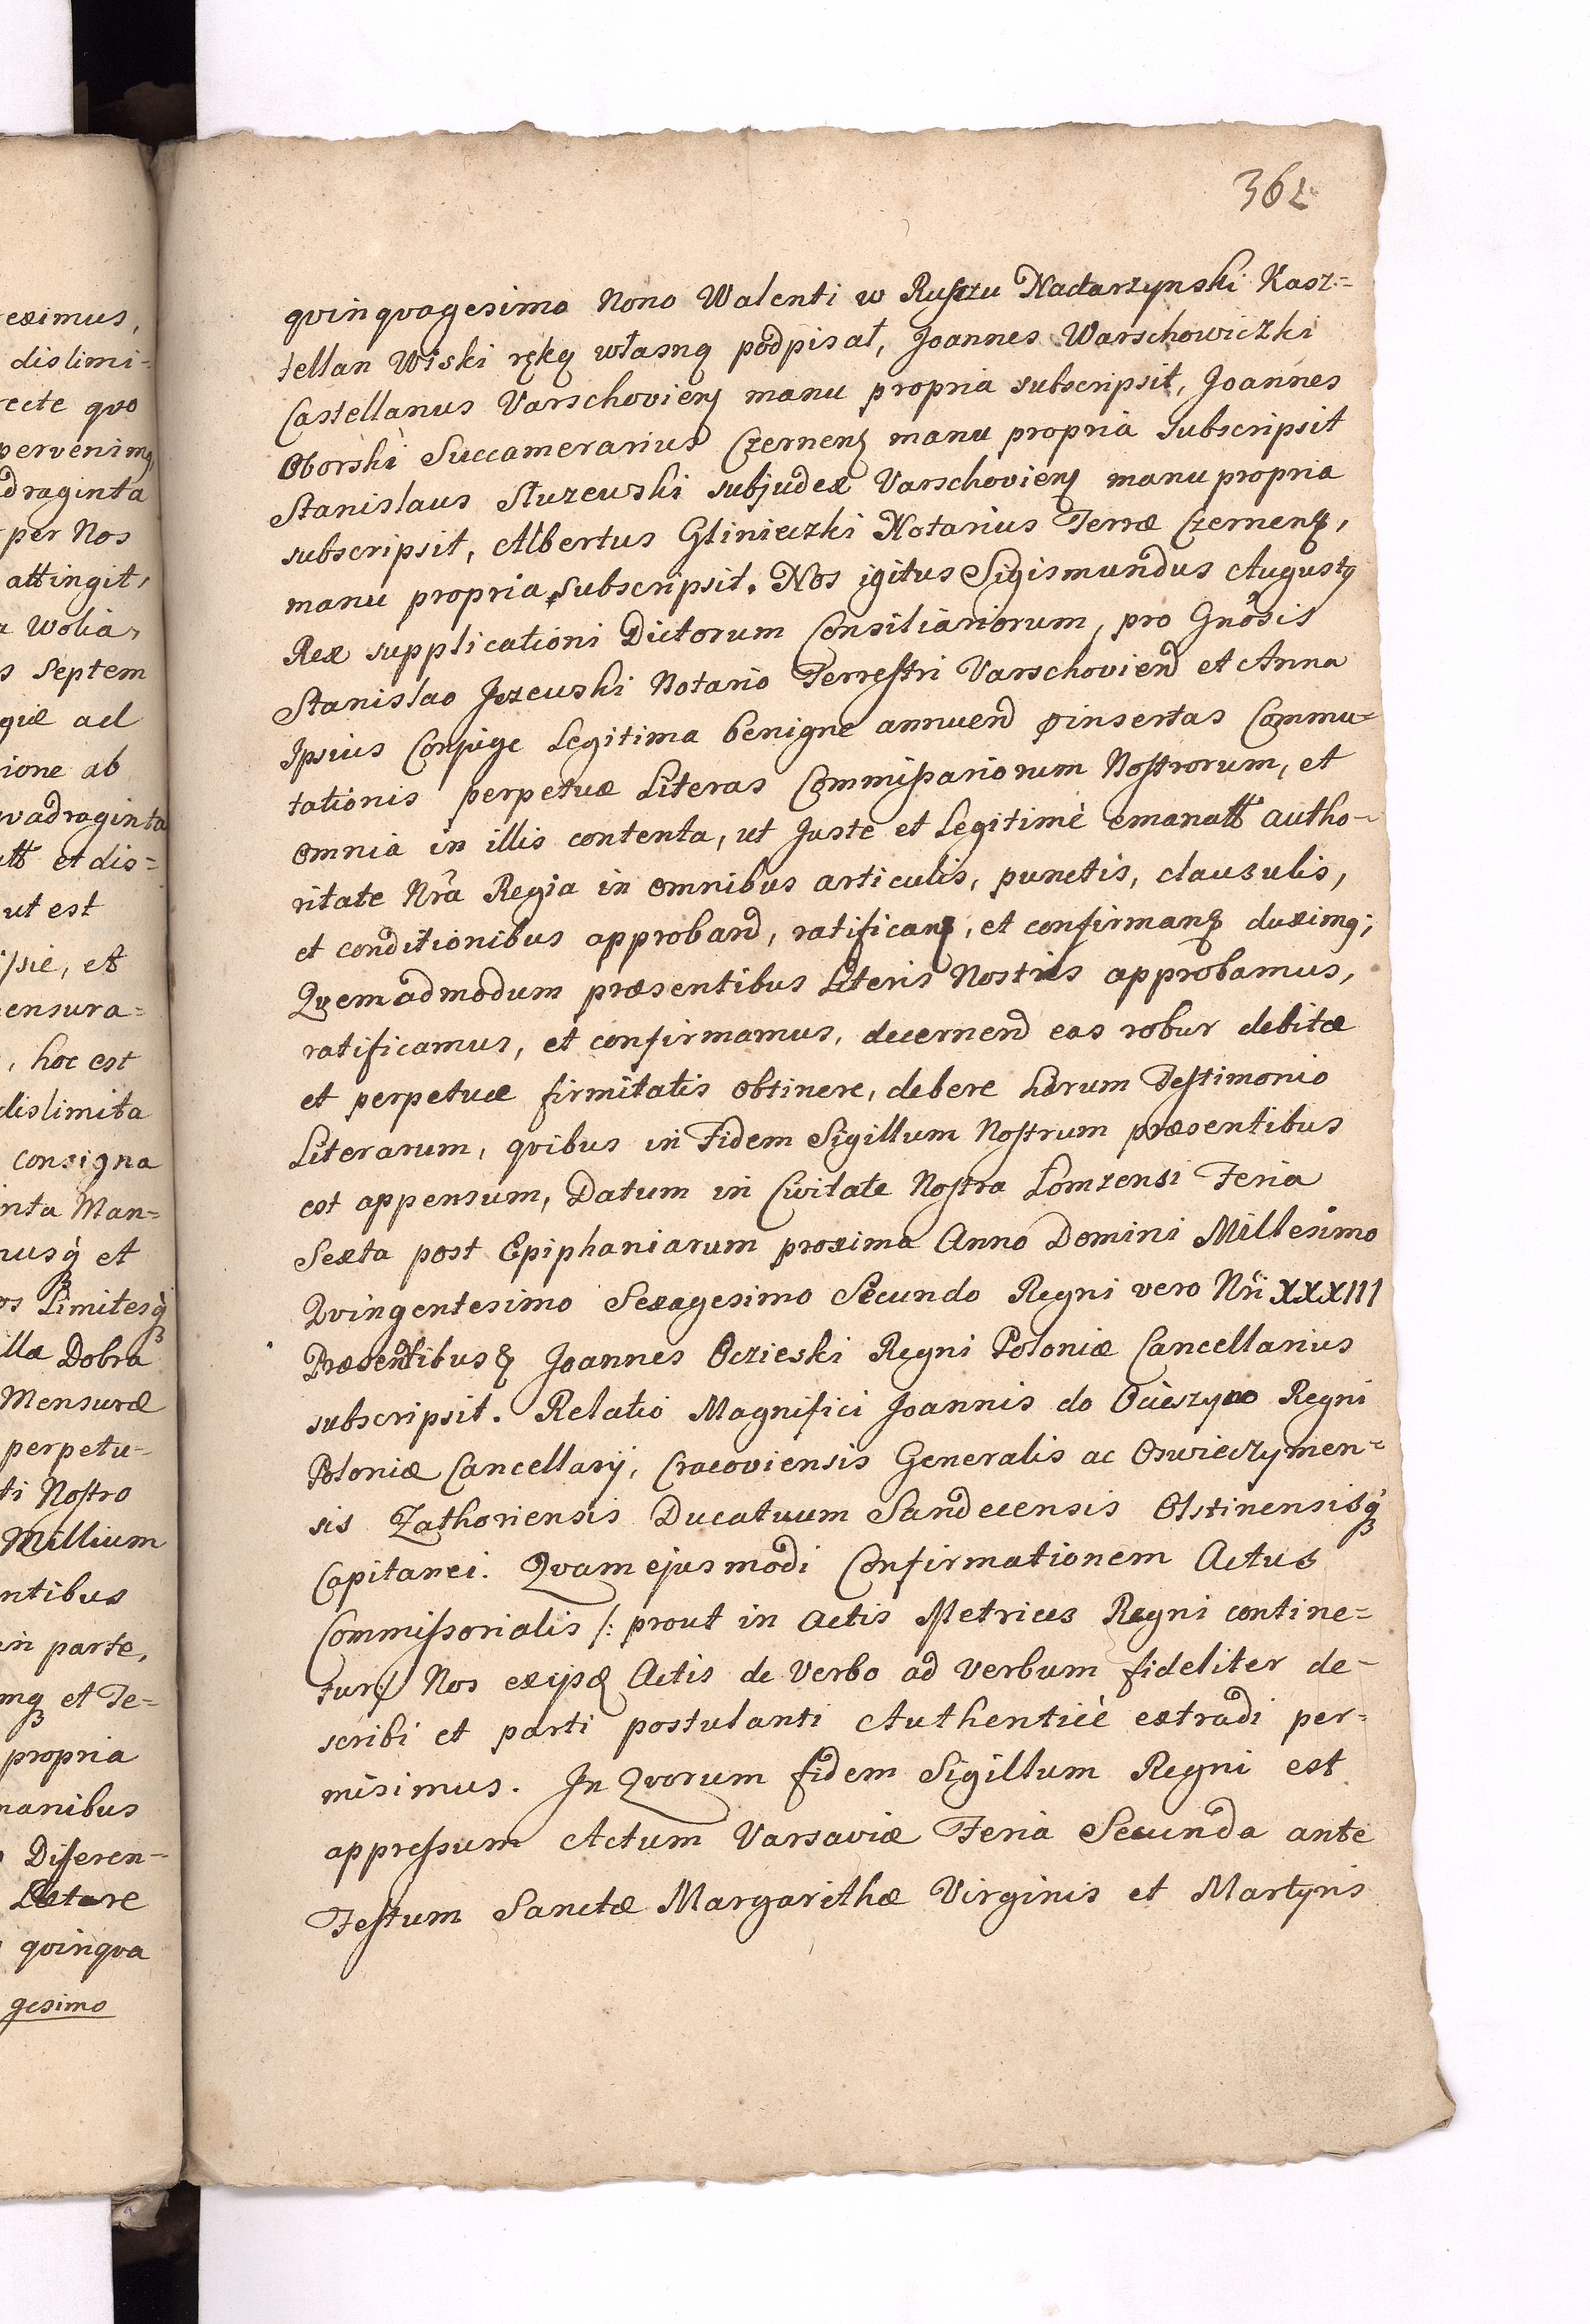 eximus,
dislimi-
recte qvo
pervenimꝫ
draginta
per Nos
attingit,
Wolia,
s Septem
qvæ ad
ione ab
vadraginta
et dis=
ut est
et
ensura=
, hoc est
dislimita
consigna
inta Man=
nusq́ et
os Limitesq́
lla Dobra
Mensuræ
perpetu-
ti Nostro
Millium
ntibus
in parte,
mꝫ et Te=
propria
manibus
Diferen-
Lætare
qvinqva
gesimo
362
qvinqvagesimo Nono Walenti w Ruszu Nadarzynski Kasz=
tellan Wiski ręką własną podpisał, Joannes Warschowiczki
Castellanus Varschovienꝫ manu propria subscripsit, Joannes
Oborski Succamerarius Czernenꝫ manu propria subscripsit
Stanislaus Sluzewski subjudex Varschovienꝫ manu propria
subscripsit, Albertus Glinieczki Notarius Terræ Czernenꝫ,
manu propria subscripsit. Nos igitus Sigismundus Augustꝫ
Rex supplicationi Dictorum Consiliariorum, pro Gnōsis
Stanislao Jezewski Notario Terrestri Varschovien̄ et Anna
Ipsius Conjuge Legitima benigne annuen̄ pinsertas Commu=
tationis perpetuæ Literas Commissariorum Nostrorum, et
omnia in illis contenta, ut Juste et Legitimè emanatt autho-
ritate Nr̄a Regia in omnibus articulis, punctis, clausulis,
et conditionibus approban̄, ratificanꝫ, et confirmanꝫ duximꝫ;
Qvemadmodum præsentibus Literis Nostris approbamus,
ratificamus, et confirmamus, decernen̄ eas robur debitæ
et perpetuæ firmitatis obtinere, debere harum Testimonio
Literarum, qvibus in Fidem Sigillum Nostrum præsentibus
est appensum, Datum in Civitate Nostra Lomzensi Feria
Sexta post Epiphaniarum proxima Anno Domini Millesimo
Qvingentesimo Sexagesimo Secundo Regni vero Nr̄i XXXIII
Præsentibusꝫ Joannes Oczieski Regni Poloniæ Cancellarius
subscripsit. Relatio Magnifici Joannis do Ocieszyno Regni
Poloniæ Cancellarij, Cracoviensis Generalis ac Oswieczymen=
sis Zathoriensis Ducatuum Sandecensis Olstinensisq́
Capitanei. Qvam ejusmodi Confirmationem Actus
Commissorialis /: prout in Actis Metrices Regni contine=
tur:/ Nos ex ipsꝫ Actis de Verbo ad Verbum fideliter de-
scribi et parti postulanti Authenticè extradi per=
misimus. In Qvorum fidem Sigillum Regni est
appressum Actum Varsaviæ Feria Secunda ante
Festum Sanctæ Margarithæ Virginis et Martyris